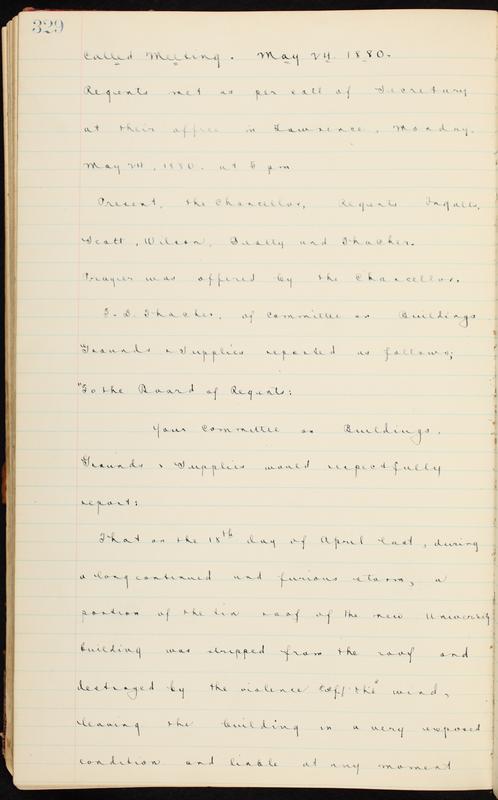 329
Called Meeting. May 24 1880.
Regents met as per call of Secretary
at their office in Lawrence, Monday,
May 24, 1880. at 5 pm
Present, the Chancellor, Regents Ingalls,
Scott, Wilson, and Thacher.
Prayer was offered by the Chancellor.
T. D. Thacher, of Committee on Buildings
Grounds & Supplies reported as follows;
"To the Board of Regents:
Your Committee on Buildings,
Grounds & Supplies would respectfully
report:
That on the 18th day of April last, during
a long continued and furious storm, a
portion of the tin roof of the new University
building was stripped from the roof and
destroyed by the violence of the wind,
leaving the building in a very exposed
condition and liable at any moment